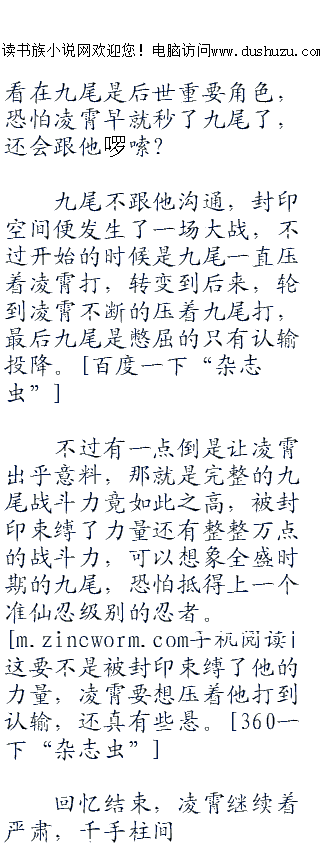 读书族小说网欢迎您！电脑访问www.dushuzu.com
看在九尾是后世重要角色，
恐怕凌霄早就秒了九尾了，
还会跟他啰嗦？
九尾不跟他沟通，封印
空间便发生了一场大战，不
过开始的时候是九尾一直压
着凌霄打，转变到后来，轮
到凌霄不断的压着九尾打，
最后九尾是憋屈的只有认输
投降。[百度一下“杂志
虫”]
不过有一点倒是让凌霄
出乎意料，那就是完整的九
尾战斗力竟如此之高，被封
印束缚了力量还有整整万点
的战斗力，可以想象全盛时
期的九尾，恐怕抵得上一个
准仙忍级别的忍者。
[m.zincworm.com手机阅读]
这要不是被封印束缚了他的
力量，凌霄要想压着他打到
认输，还真有些悬。[360一
下“杂志虫”]
回忆结束，凌霄继续着
严肃，千手柱间